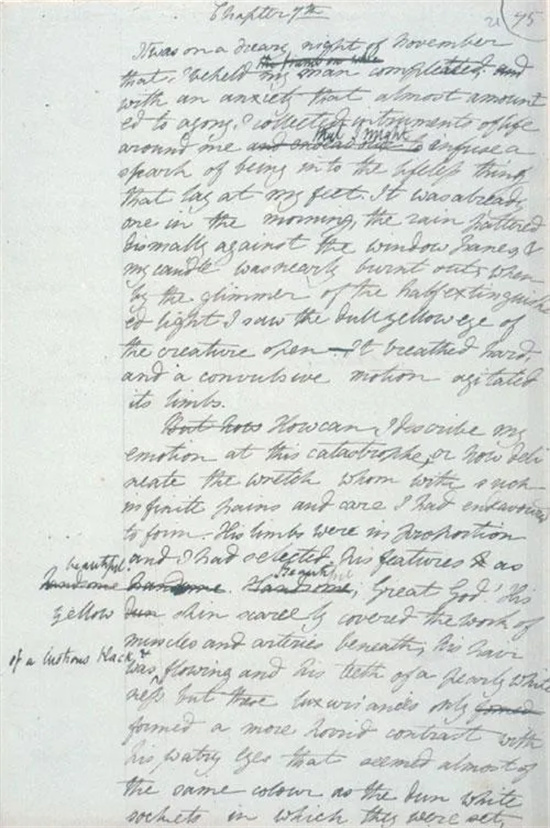 Chapter 7th
21
95
It was on a dreary night of November
the frame on whic
that I beheld my man compleated, and
with an anxiety that almost amount
ed to agony, I collected instruments of life
that I might
around me and endeavour to infuse a
spark of being into the lifeless thing
that lay at my feet. It was already
one in the morning, the rain pattered
dismally against the window panes, &
my candle was nearly burnt out, when
by the glimmer of the half extinguish
ed light I saw the dull yellow eye of
the creature open — It breathed hard,
and a convulsive motion agitated
its limbs.
But how How can I describe my
emotion at this catastrophe, or how deli
neate the wretch whom with such
infinite pains and care I had endeavoured
to form. His limbs were in proportion
and I had selected his features as
beautiful
handsome handsome. Handsome, Great God! His
Beautiful
yellow dun skin scarcely covered the work of
muscles and arteries beneath, his hair
of a lustrous black, &
was flowing and his teeth of a pearly white
ness but these luxuriancies only formed
formed a more horrid contrast with
his watry eyes that seemed almost of
the same colour as the dun white
sockets in which they were set,